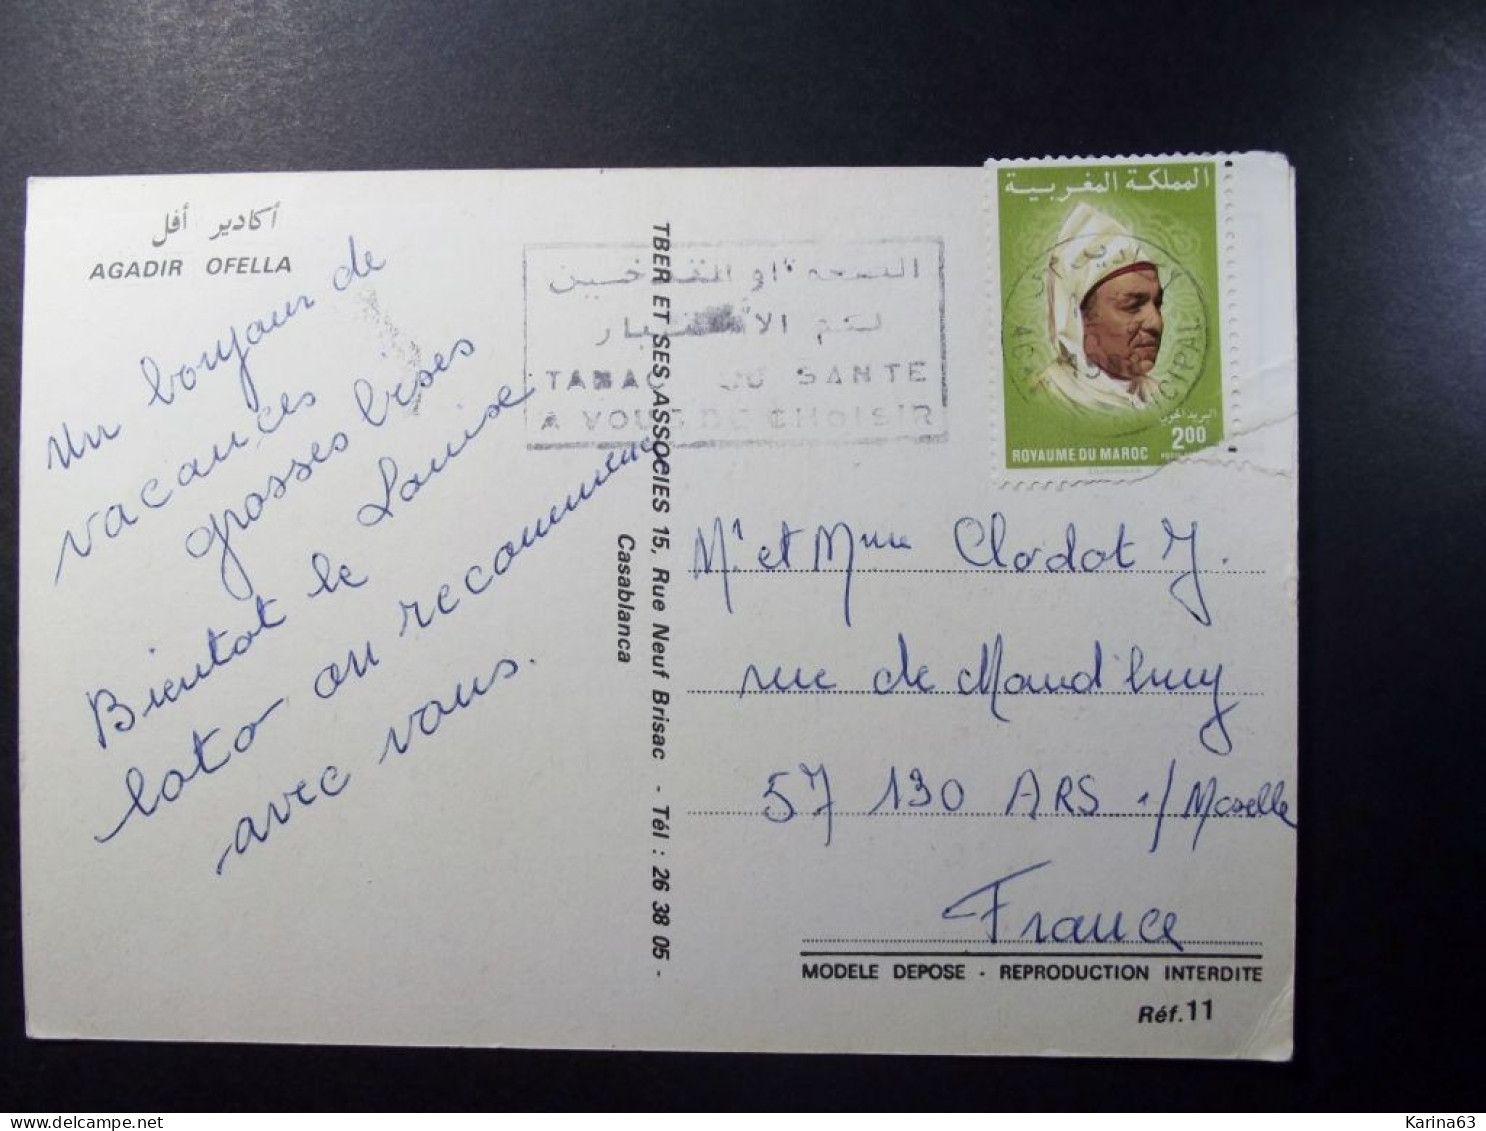 أكادير أفل
AGADIR OFELLA
Un bonjour de
vacances
grosses bises
Bientot le Louise
loto on recommence
avec vous.
TBER ET SES ASSOCIES 15, Rue Neuf Brisac - Tél : 26 38 05 -
Casablanca
الصحة او التدخين
لكم الاختيار
TABAC OU SANTE
A VOUS DE CHOISIR
المملكة المغربية
البريد الجوي
2.00
ROYAUME DU MAROC
Mr et Mme Clodot J.
rue de
57 130 ARS s/Moselle
France
MODELE DEPOSE - REPRODUCTION INTERDITE
Réf.11
Karina63